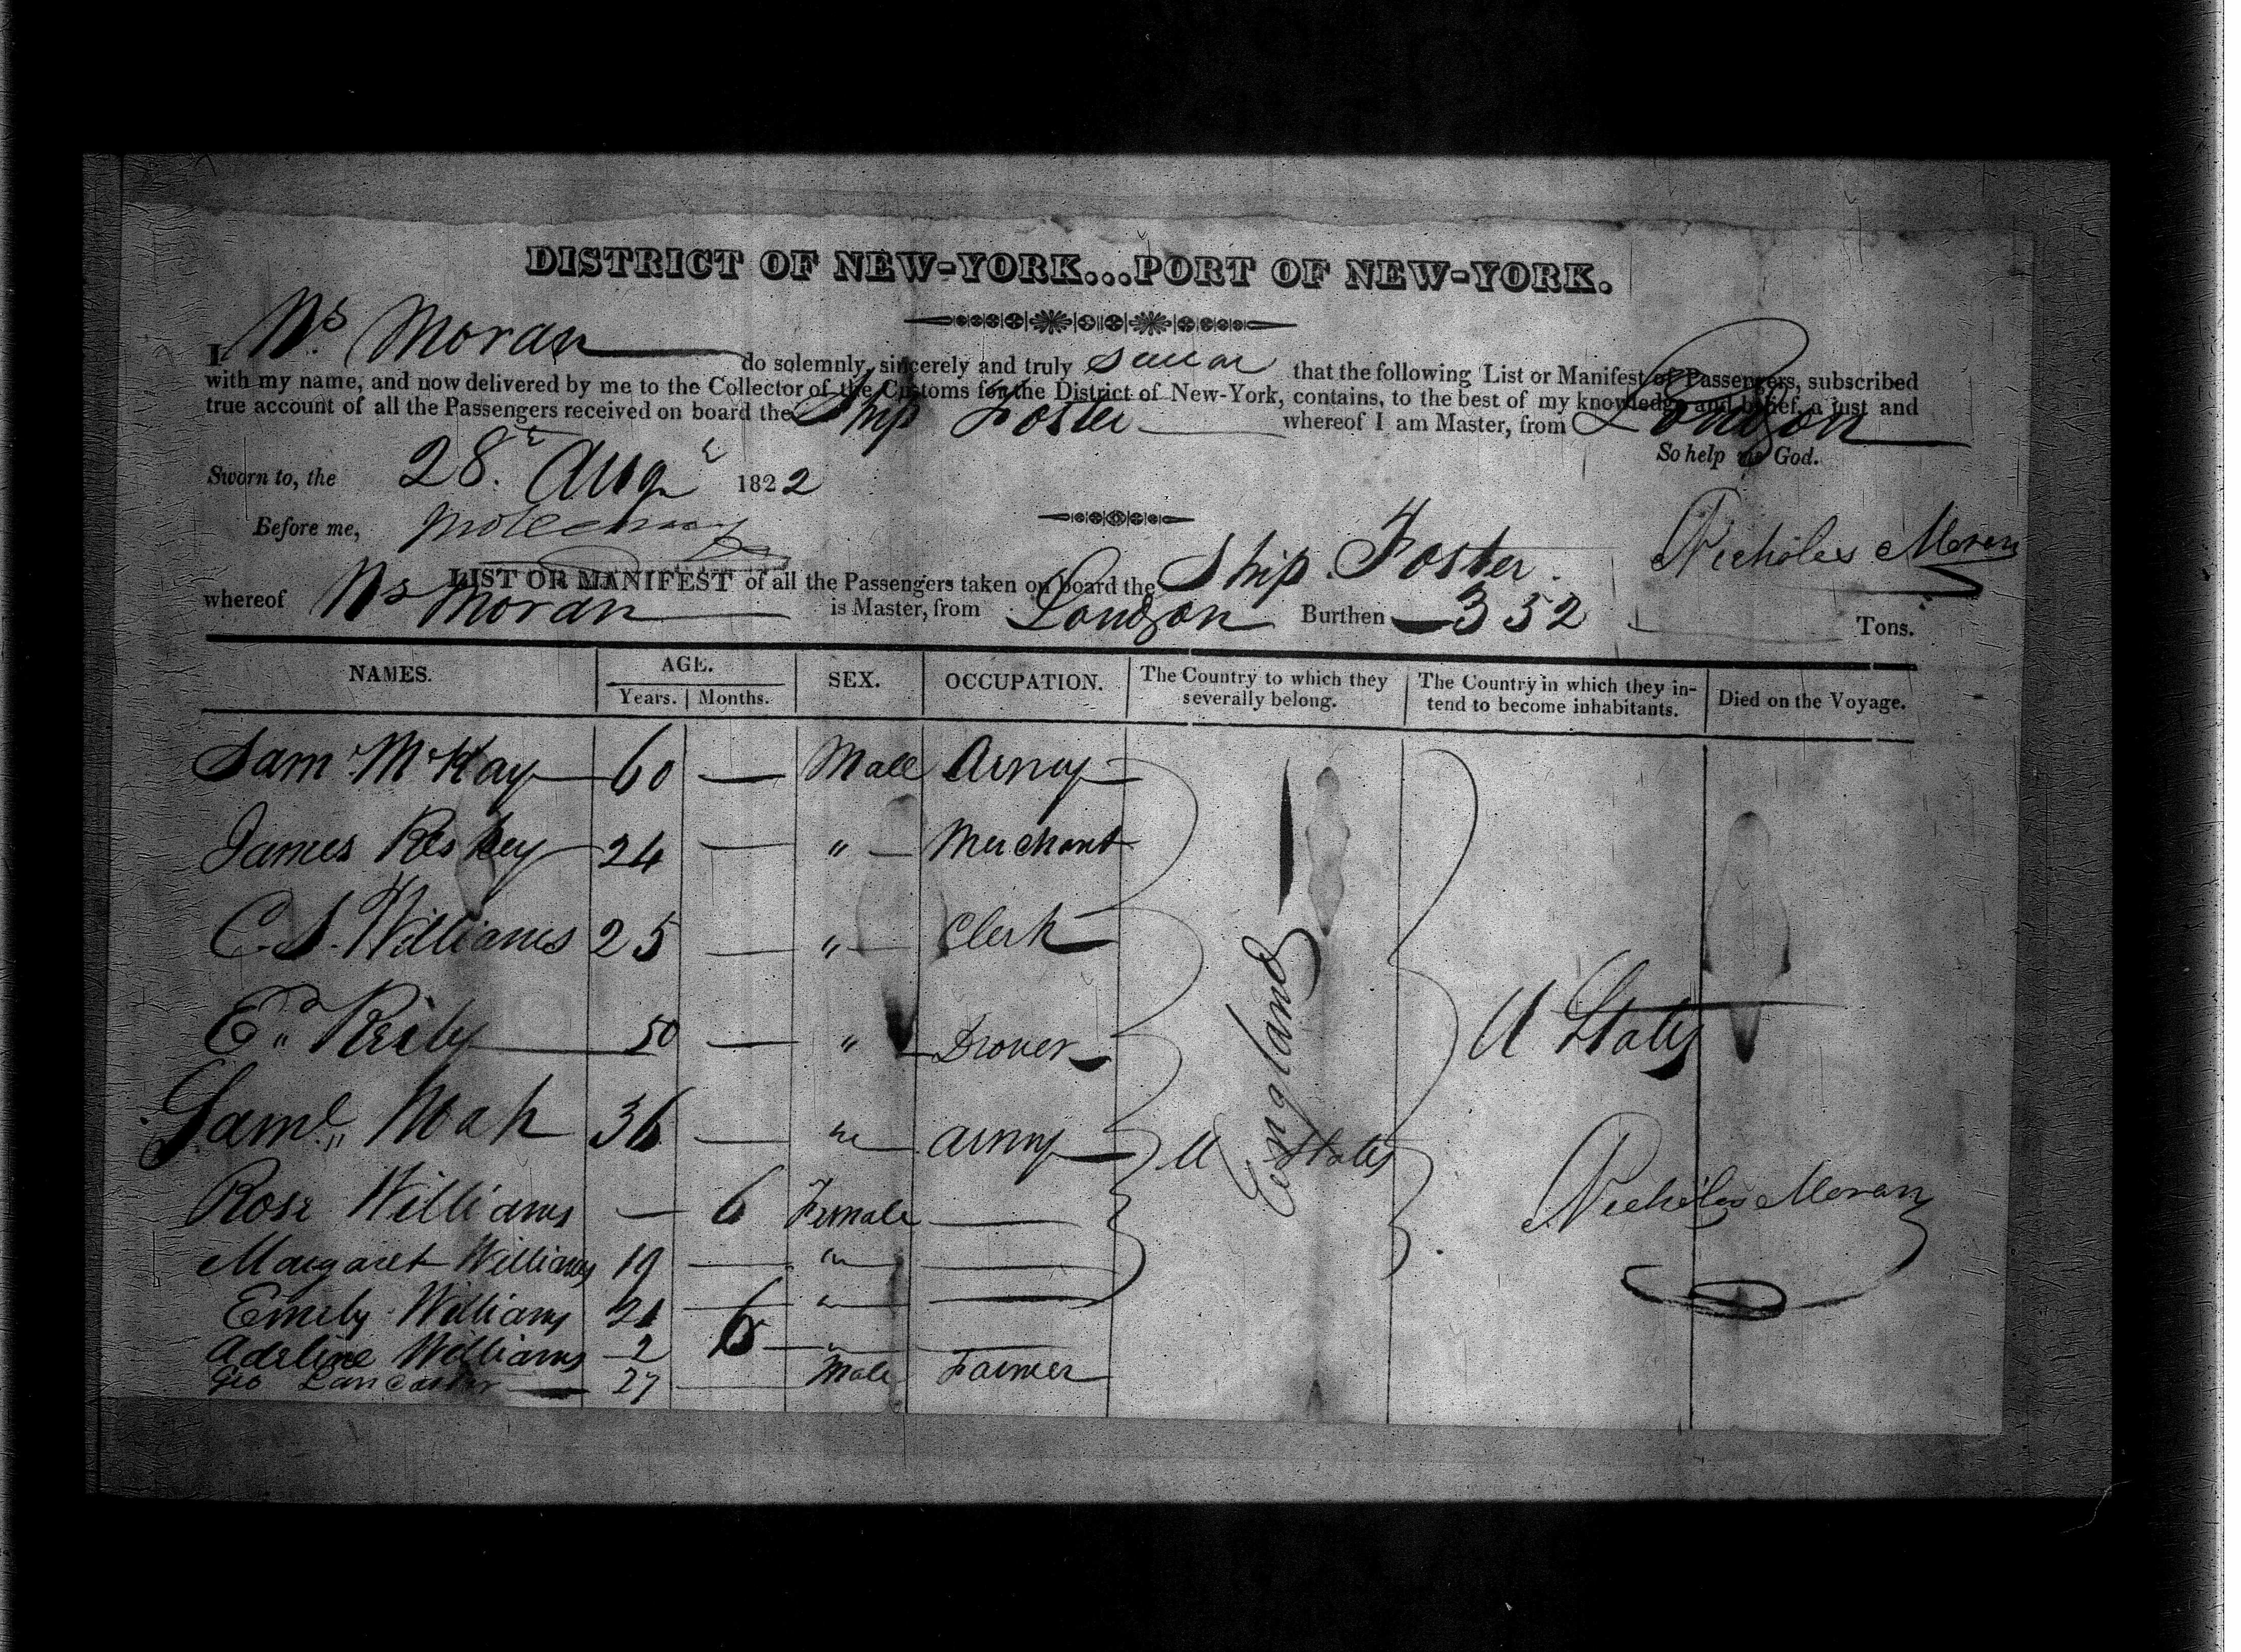 DISTRICT OF NEW-YORK...PORT OF NEW-YORK.
I Ns. Moran do solemnly, sincerely and truly swear that the following List or Manifest of Passengers, subscribed
with my name, and now delivered by me to the Collector of the Customs for the District of New-York, contains, to the best of my knowledge and belief, a just and
true account of all the Passengers received on board the Ship Foster whereof I am Master, from London
So help me God.
Sworn to, the 28. Aug 1822
Before me,
Nicholas Moran
LIST OR MANIFEST of all the Passengers taken on board the Ship Foster
whereof Ns Moran is Master, from London Burthen 352 Tons.
NAMES. AGE. Years. Months. SEX. OCCUPATION. The Country to which they severally belong. The Country in which they intend to become inhabitants. Died on the Voyage.
Sam McKay 60 — Male Army
James 24 — " Merchant
C. S. Williams 25 — " Clerk
Ed Reily 50 — " Drover
England
U States
Saml Noah 36 — " Army U States
Rose Williams — 6 Female —
Nicholas Moran
Margaret Williams 19 — " —
Emily Williams 21 — " —
Adeline Williams 2 6 " —
Geo Lancaster 27 — Male Farmer